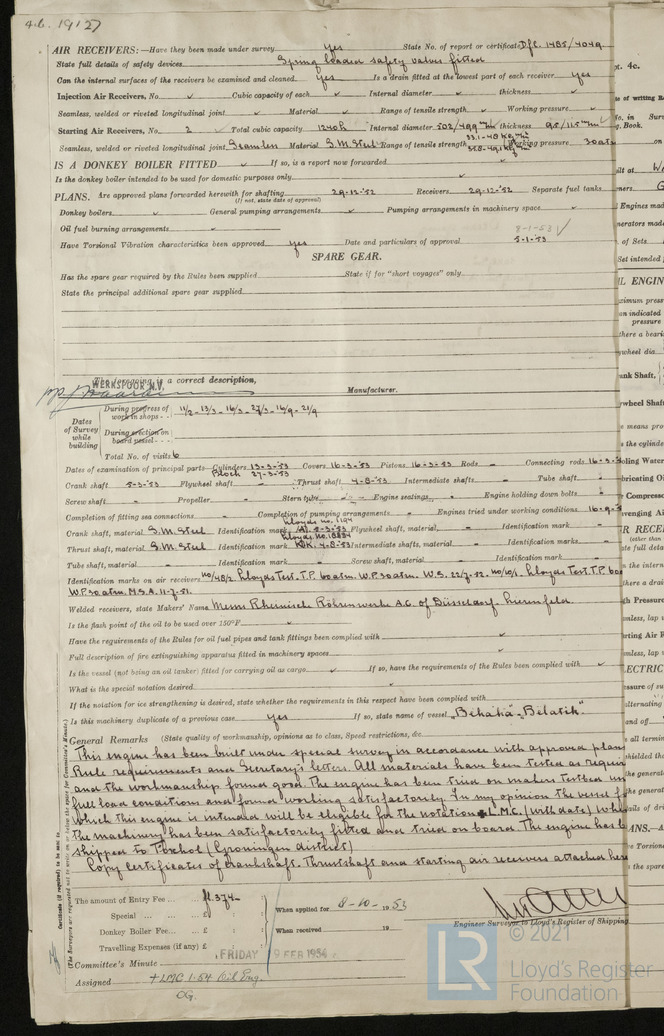 4.b. 19127
AIR RECEIVERS:—Have they been made under survey yes State No. of report or certificate D.f.C. 1485/4049
State full details of safety devices Spring loaded safety valves fitted
Can the internal surfaces of the receivers be examined and cleaned yes Is a drain fitted at the lowest part of each receiver yes
Injection Air Receivers, No. ✓ Cubic capacity of each ✓ Internal diameter ✓ thickness ✓
Seamless, welded or riveted longitudinal joint ✓ Material ✓ Range of tensile strength ✓ Working pressure ✓
Starting Air Receivers, No. 2 Total cubic capacity Internal diameter 502/499 m/m thickness 9.5/11.5 m/m
Seamless, welded or riveted longitudinal joint Seamless Material S.M. Steel Range of tensile strength Working pressure 30 atm
IS A DONKEY BOILER FITTED ✓ If so, is a report now forwarded
Is the donkey boiler intended to be used for domestic purposes only
PLANS. Are approved plans forwarded herewith for shafting 29-12-'52 Receivers 29-12-'52 Separate fuel tanks
(If not, state date of approval)
Donkey boilers ✓ General pumping arrangements ✓ Pumping arrangements in machinery space ✓
Oil fuel burning arrangements ✓
8-1-53 ✓
Have Torsional Vibration characteristics been approved yes Date and particulars of approval 5-1-53
SPARE GEAR.
Has the spare gear required by the Rules been supplied State if for "short voyages" only
State the principal additional spare gear supplied
The foregoing is a correct description,
WERKSPOOR N.V.
Manufacturer.
Dates of Survey while building
During progress of work in shops - - 11/2 - 13/3 - 16/3 - 27/3 - 16/9 - 21/9
During erection on board vessel - - -
Total No. of visits 6
Dates of examination of principal parts—Cylinders 13-3-53 Covers 16-3-53 Pistons 16-3-53 Rods - Connecting rods 16-3-
Block 27-3-53
Crank shaft 5-3-53 Flywheel shaft - Thrust shaft 4-8-53 Intermediate shafts - Tube shaft -
Screw shaft - Propeller - Stern tube - Engine seatings - Engine holding down bolts -
Completion of fitting sea connections - Completion of pumping arrangements - Engines tried under working conditions 16-9-5
Crank shaft, material S.M. Steel Identification mark Flywheel shaft, material - Identification mark -
Thrust shaft, material S.M. Steel Identification mark 4-8-53 Intermediate shafts, material - Identification marks -
Tube shaft, material - Identification mark - Screw shaft, material - Identification mark -
Identification marks on air receivers Lloyds Test. T.P. 60 atm. W.P. 30 atm. W.S. 22/7-52. Lloyds Test. T.P. 60
W.P. 30 atm. M.S.A. 11-7-51.
Welded receivers, state Makers' Name Messrs Rheinische Röhrenwerke A.G. of Düsseldorf
Is the flash point of the oil to be used over 150°F. ✓
Have the requirements of the Rules for oil fuel pipes and tank fittings been complied with ✓
Full description of fire extinguishing apparatus fitted in machinery spaces
Is the vessel (not being an oil tanker) fitted for carrying oil as cargo ✓ If so, have the requirements of the Rules been complied with ✓
What is the special notation desired
If the notation for ice strengthening is desired, state whether the requirements in this respect have been complied with
Is this machinery duplicate of a previous case yes If so, state name of vessel „Behaka" „Belatik"
General Remarks (State quality of workmanship, opinions as to class, Speed restrictions, &c.
This engine has been built under special survey in accordance with approved plans
Rule requirements and Secretary's letters. All materials have been tested as requir
and the workmanship found good. The engine has been tried on makers testbed un
full load conditions and found working satisfactorily. In my opinion the vessel f
which this engine is intended will be eligible for the notation L.M.C. (with date) whe
the machinery has been satisfactorily fitted and tried on board. The engine has b
shipped to Foxhol (Groningen district)
Copy certificates of crankshaft. Thrustshaft and starting air receivers attached here
Certificate (if required) to be sent to
(The Surveyors are requested not to write on or below the space for Committee's Minute.)
The amount of Entry Fee ... fl. 374-
Special ... ... £ :
Donkey Boiler Fee... £ :
Travelling Expenses (if any) £ :
When applied for 8-10-1953
When received 19
Engineer Surveyor to Lloyd's Register of Shipping
Committee's Minute FRIDAY 19 FEB 1954
Assigned +LMC 1-54 Oil Eng.
OG.
© 2021
LR
Lloyd's Register
Foundation